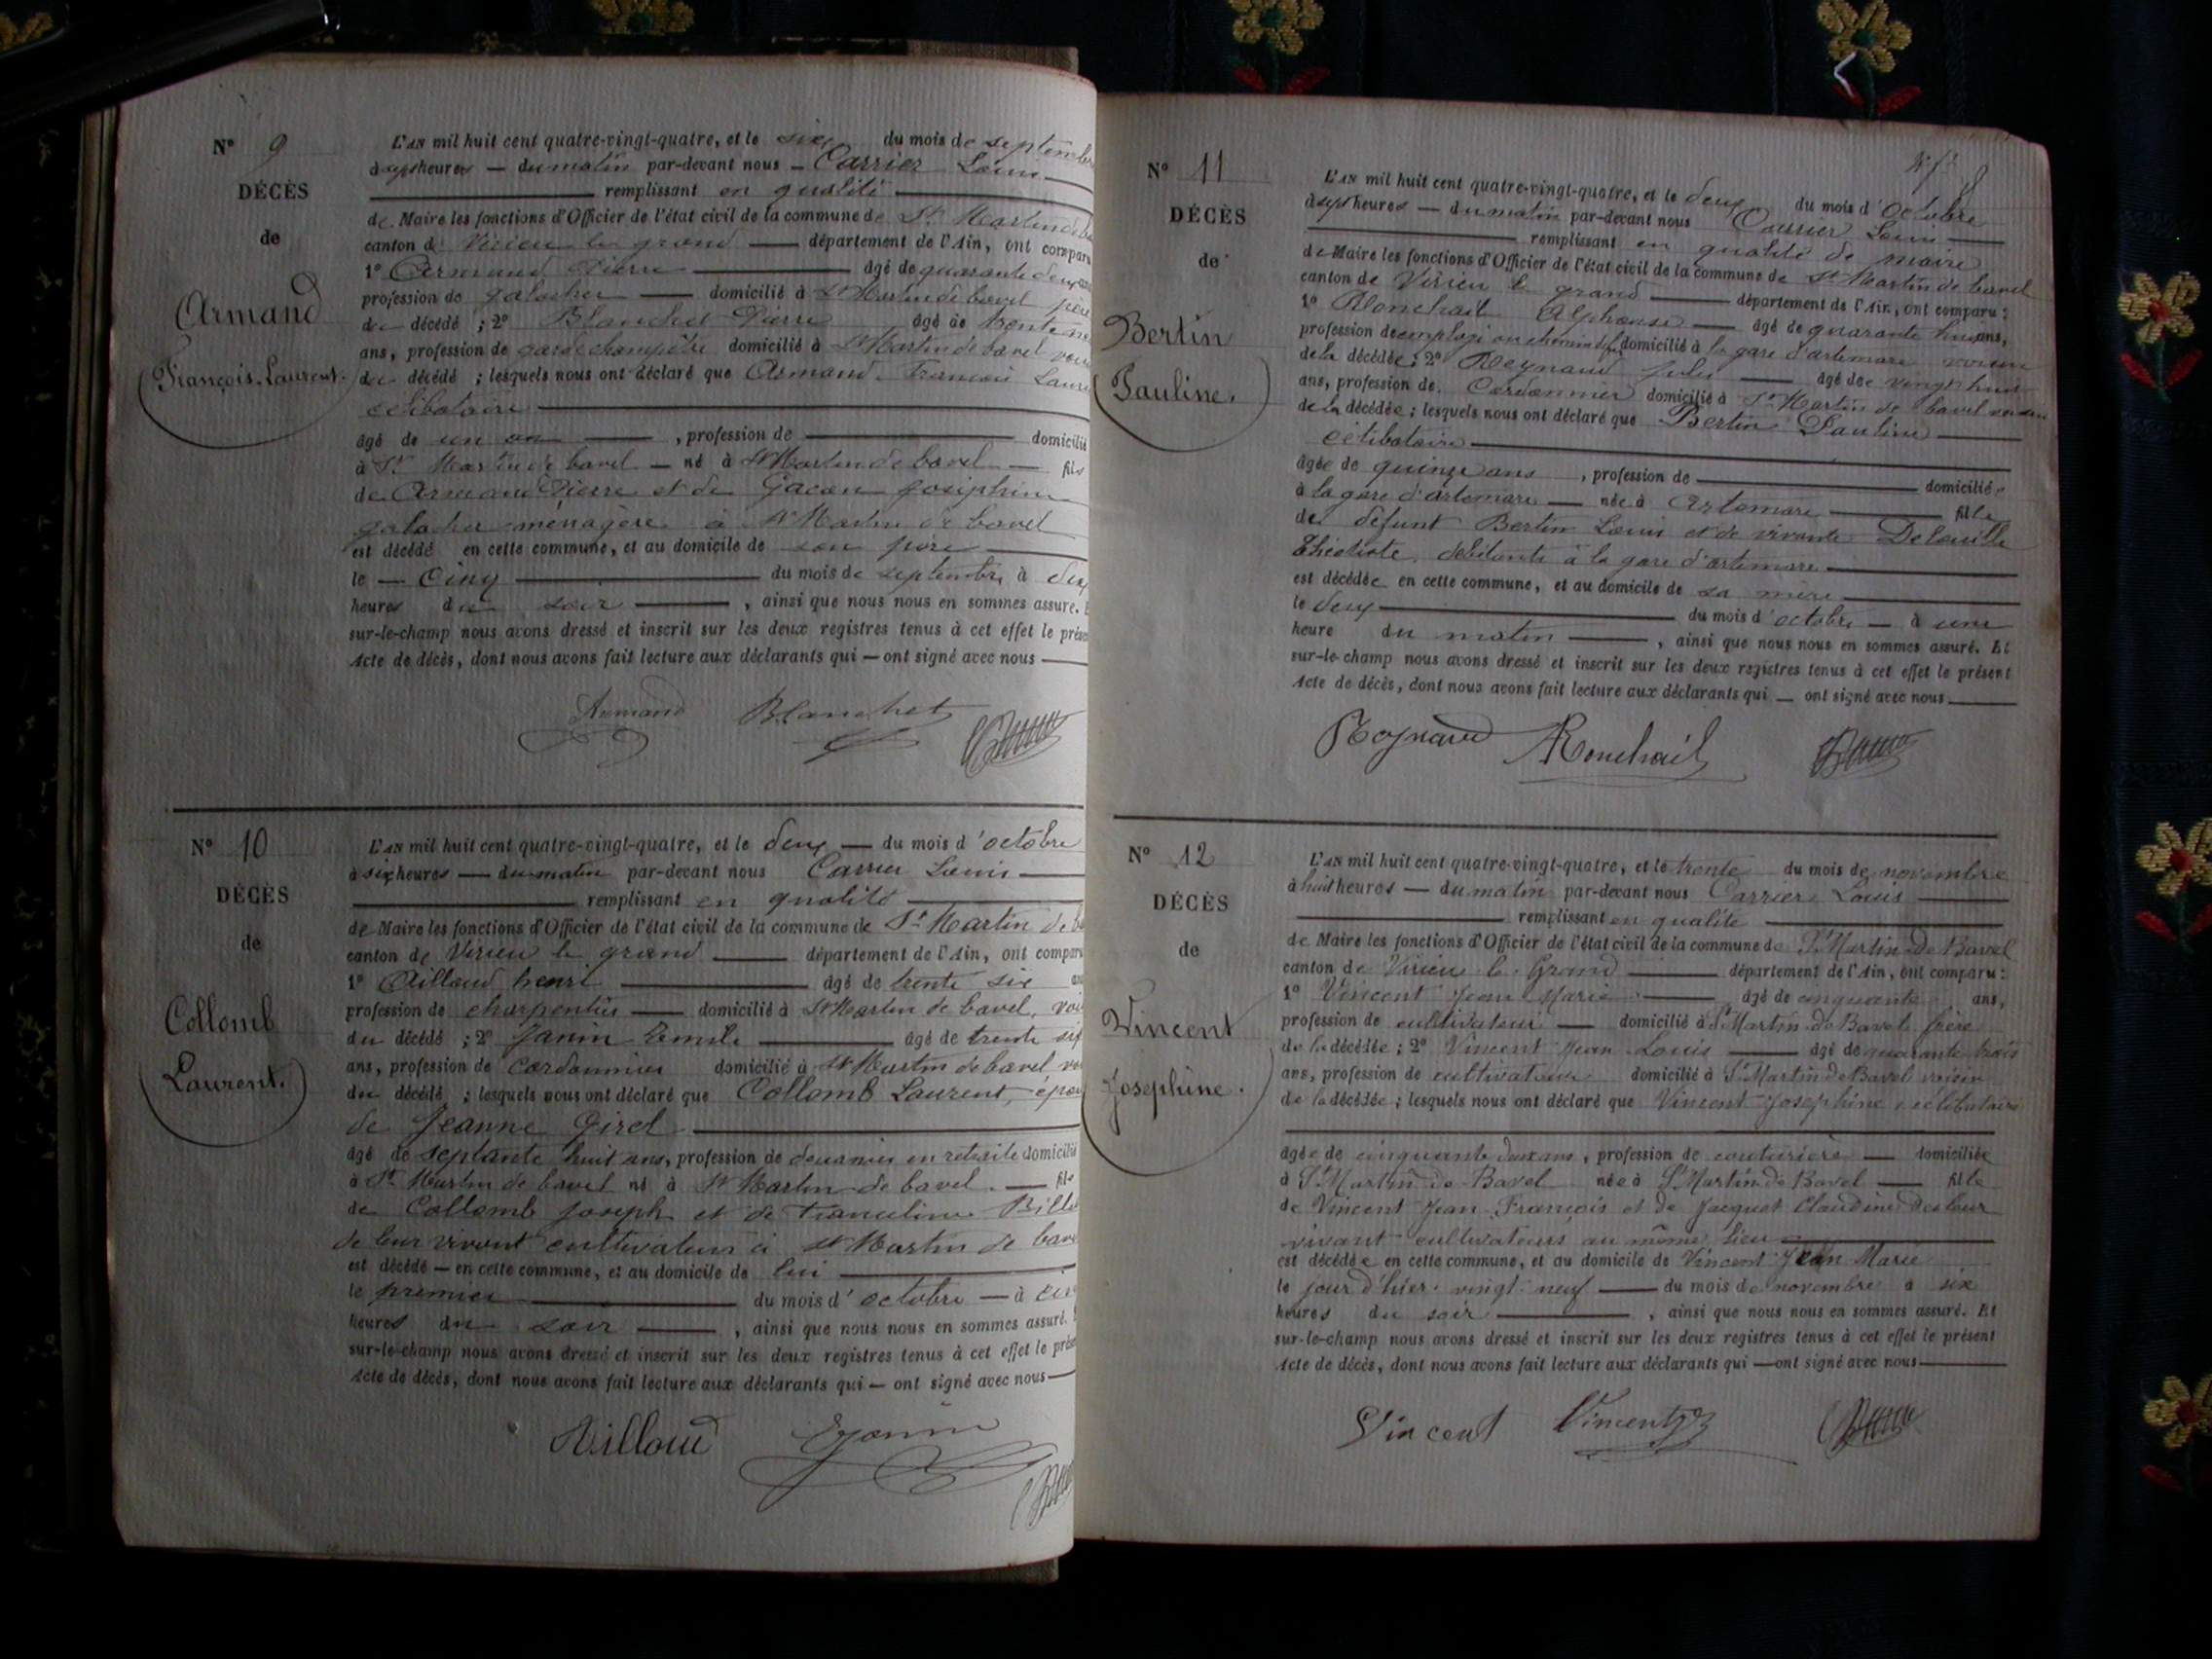 N° 9
DÉCÈS
de
Armand
François Laurent.
L'AN mil huit cent quatre-vingt-quatre, et le six du mois de septembre
à sept heures — du matin par-devant nous — Carrier Louis —
remplissant en qualité
de Maire les fonctions d'Officier de l'état civil de la commune de St Martin de
canton de Virieu le grand — département de l'Ain, ont comparu
1° Armand Pierre — âgé de quarante deux
profession de — domicilié à St Martin de bavel père
du décédé ; 2° Blanchet Pierre âgé de trente
ans, profession de garde champêtre domicilié à St Martin de bavel
du décédé ; lesquels nous ont déclaré que Armand François
célibataire
âgé de un an — , profession de — domicilié
à St Martin de bavel — né à St Martin de bavel — fils
de Armand Pierre et de Gacon Josephine
ménagère à St Martin de bavel
est décédé en cette commune, et au domicile de son père
le — Cinq — du mois de septembre à
heures du soir — , ainsi que nous nous en sommes assuré.
sur-le-champ nous avons dressé et inscrit sur les deux registres tenus à cet effet le
Acte de décès, dont nous avons fait lecture aux déclarants qui — ont signé avec nous —
Armand Blanchet
N° 10
DÉCÈS
de
Collomb
Laurent.
L'AN mil huit cent quatre-vingt-quatre, et le deux — du mois d'octobre
à six heures — du matin par-devant nous Carrier Louis —
remplissant en qualité
de Maire les fonctions d'Officier de l'état civil de la commune de St Martin de
canton de Virieu le grand — département de l'Ain, ont
1° Ailloud henri — âgé de trente six
profession de charpentier — domicilié à St Martin de bavel,
du décédé ; 2° Janin Emile — âgé de trente
ans, profession de Cordonnier domicilié à St Martin de bavel
du décédé ; lesquels nous ont déclaré que Collomb Laurent,
de Jeanne Girel
âgé de septante huit ans, profession de douanier en retraite domicilié
à St Martin de bavel né à St Martin de bavel. — fils
de Collomb Joseph et de
de leur vivant cultivateurs à St Martin de
est décédé — en cette commune, et au domicile de lui
le premier — du mois d'octobre — à
heures du soir — , ainsi que nous nous en sommes assuré.
sur-le-champ nous avons dressé et inscrit sur les deux registres tenus à cet effet le
Acte de décès, dont nous avons fait lecture aux déclarants qui — ont signé avec nous —
Ailloud Ejanin
N° 11
DÉCÈS
de
Bertin
Pauline.
L'AN mil huit cent quatre-vingt-quatre, et le deux du mois d'octobre
à sept heures — du matin par-devant nous Carrier Louis —
remplissant en qualité de maire
de Maire les fonctions d'Officier de l'état civil de la commune de St Martin de bavel
canton de Virieu le grand — département de l'Ain, ont comparu :
1° Ronchail Alphonse — âgé de quarante huit ans,
profession de employé au chemin de fer domicilié à la gare d'artemare voisin
de la décédée ; 2° Reynaud Jules — âgé de vingt huit
ans, profession de Cordonnier domicilié à St Martin de bavel voisin
de la décédée ; lesquels nous ont déclaré que Bertin Pauline —
célibataire
âgée de quinze ans , profession de — domiciliée
à la gare d'artemare — née à Artemare — fille
de défunt Bertin Louis et de vivante
débitante à la gare d'artemare
est décédée en cette commune, et au domicile de sa mère
le deux — du mois d'octobre — à une
heure du matin — , ainsi que nous nous en sommes assuré. Et
sur-le-champ nous avons dressé et inscrit sur les deux registres tenus à cet effet le présent
Acte de décès, dont nous avons fait lecture aux déclarants qui — ont signé avec nous —
Reynaud ARonchail
N° 12
DÉCÈS
de
Vincent
Josephine.
L'AN mil huit cent quatre-vingt-quatre, et le trente du mois de novembre
à huit heures — du matin par-devant nous Carrier Louis —
remplissant en qualité
de Maire les fonctions d'Officier de l'état civil de la commune de St Martin de Bavel
canton de Virieu le Grand — département de l'Ain, ont comparu :
1° Vincent Jean Marie — âgé de cinquante ans,
profession de cultivateur — domicilié à St Martin de Bavel frère
de la décédée ; 2° Vincent Jean Louis — âgé de quarante trois
ans, profession de cultivateur domicilié à St Martin de Bavel voisin
de la décédée ; lesquels nous ont déclaré que Vincent Josephine célibataire
âgée de cinquante deux ans, profession de couturière — domiciliée
à St Martin de Bavel née à St Martin de Bavel — fille
de Vincent Jean François et de Jacquet Claudine de leur
vivant cultivateurs au même lieu
est décédée en cette commune, et au domicile de Vincent Jean Marie
le jour d'hier vingt neuf — du mois de novembre à six
heures du soir — , ainsi que nous nous en sommes assuré. Et
sur-le-champ nous avons dressé et inscrit sur les deux registres tenus à cet effet le présent
Acte de décès, dont nous avons fait lecture aux déclarants qui — ont signé avec nous —
Vincent Vincent